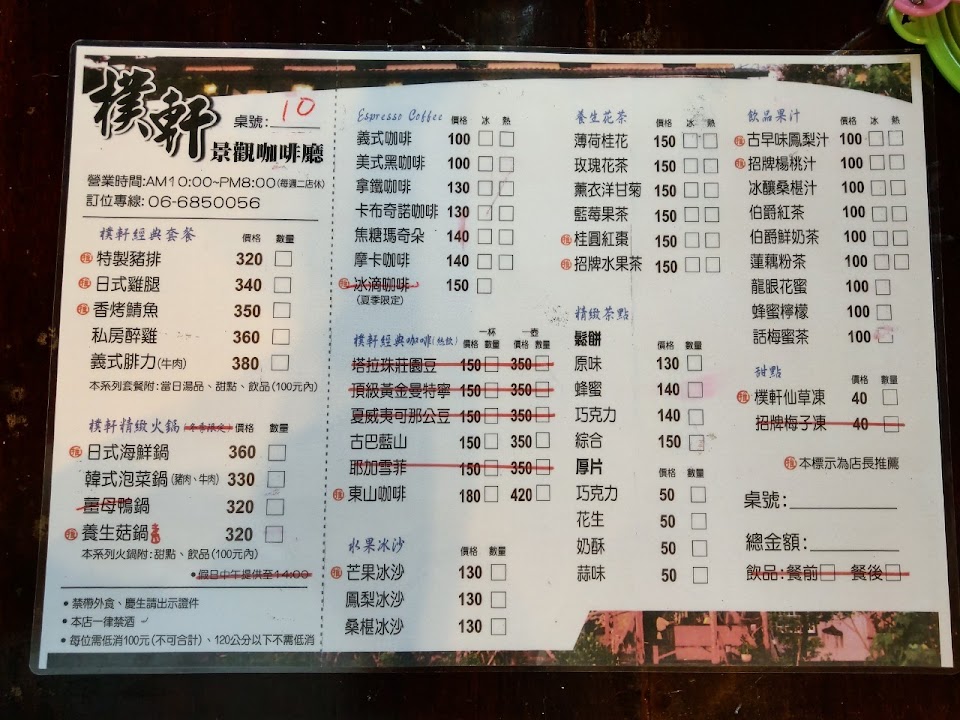 樸軒
景觀咖啡廳
桌號: 10
營業時間:AM10:00~PM8:00(每週二店休)
訂位專線: 06-6850056
樸軒經典套餐 價格 數量
推 特製豬排 320
推 日式雞腿 340
推 香烤鯖魚 350
私房醉雞 360
義式腓力(牛肉) 380
本系列套餐附:當日湯品、甜點、飲品(100元內)
樸軒精緻火鍋(冬季限定) 價格 數量
推 日式海鮮鍋 360
韓式泡菜鍋(豬肉、牛肉) 330
薑母鴨鍋 320
推 養生菇鍋 素 320
本系列火鍋附:甜點、飲品(100元內)
•假日中午提供至14:00
•禁帶外食、慶生請出示證件
•本店一律禁酒
•每位需低消100元(不可合計)、120公分以下不需低消
Espresso Coffee 價格 冰 熱
義式咖啡 100
美式黑咖啡 100
拿鐵咖啡 130
卡布奇諾咖啡 130
焦糖瑪奇朵 140
摩卡咖啡 140
推 冰滴咖啡 150
(夏季限定)
一杯 一壺
樸軒經典咖啡(熱飲) 價格 數量 價格 數量
塔拉珠莊園豆 150 350
頂級黃金曼特寧 150 350
夏威夷可那公豆 150 350
古巴藍山 150 350
耶加雪菲 150 350
推 東山咖啡 180 420
水果冰沙 價格 數量
推 芒果冰沙 130
鳳梨冰沙 130
桑椹冰沙 130
養生花茶 價格 冰 熱
薄荷桂花 150
玫瑰花茶 150
薰衣洋甘菊 150
藍莓果茶 150
推 桂圓紅棗 150
推 招牌水果茶 150
精緻茶點
鬆餅 價格 數量
原味 130
蜂蜜 140
巧克力 140
綜合 150
厚片 價格 數量
巧克力 50
花生 50
奶酥 50
蒜味 50
飲品果汁 價格 冰 熱
推 古早味鳳梨汁 100
推 招牌楊桃汁 100
冰釀桑椹汁 100
伯爵紅茶 100
伯爵鮮奶茶 100
蓮藕粉茶 100
龍眼花蜜 100
蜂蜜檸檬 100
話梅蜜茶 100
甜點 價格 數量
推 樸軒仙草凍 40
招牌梅子凍 40
推 本標示為店長推薦
桌號:
總金額:
飲品:餐前 餐後